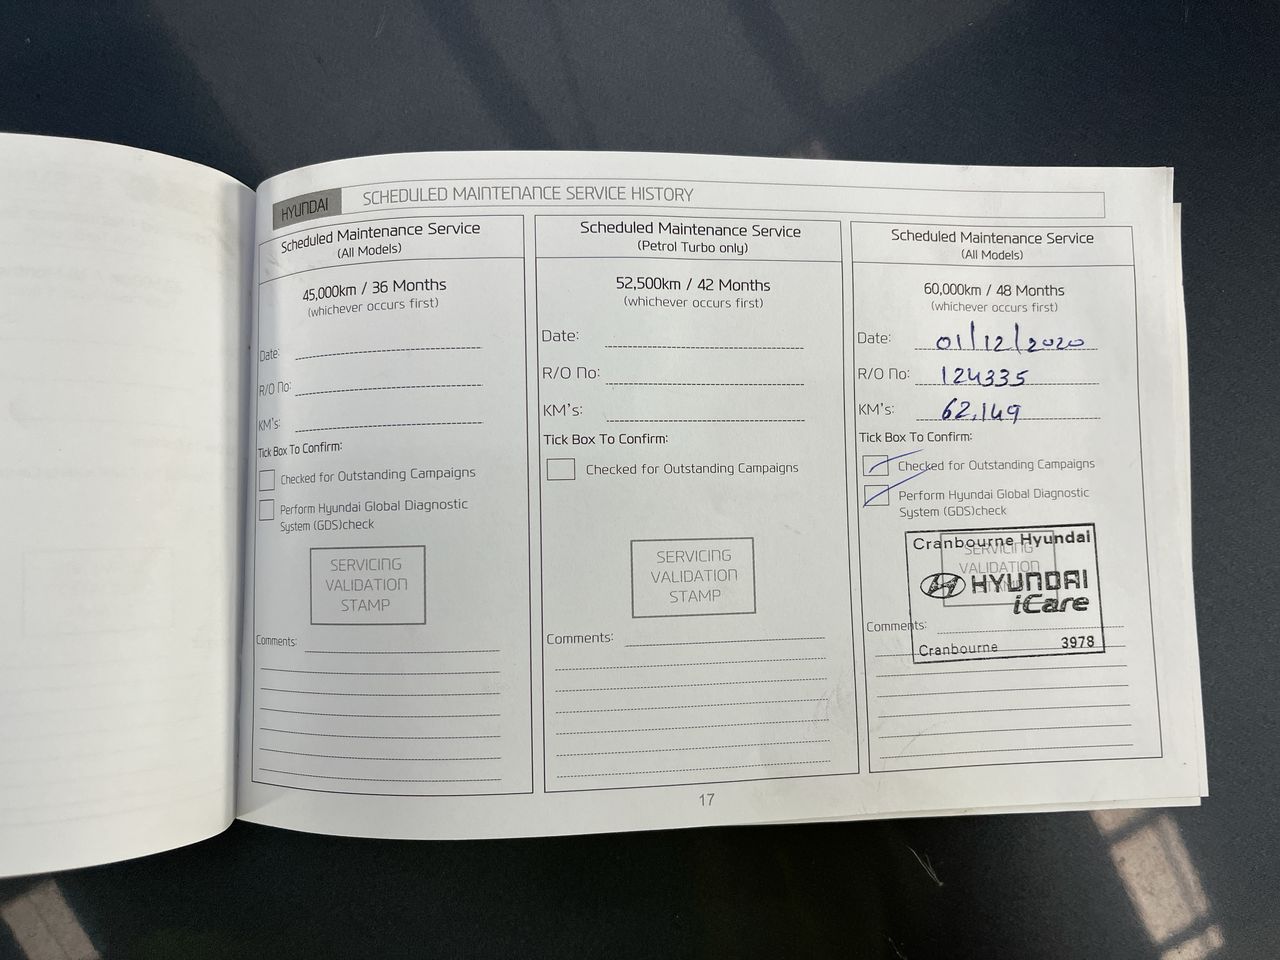 HYUNDAI
SCHEDULED MAINTENANCE SERVICE HISTORY
Scheduled Maintenance Service
(All Models)
45,000km / 36 Months
(whichever occurs first)
Date:
R/O No:
KM's:
Tick Box To Confirm:
Checked for Outstanding Campaigns
Perform Hyundai Global Diagnostic
System (GDS)check
SERVICING
VALIDATION
STAMP
Comments:
Scheduled Maintenance Service
(Petrol Turbo only)
52,500km / 42 Months
(whichever occurs first)
Date:
R/O No:
KM's:
Tick Box To Confirm:
Checked for Outstanding Campaigns
SERVICING
VALIDATION
STAMP
Comments:
Scheduled Maintenance Service
(All Models)
60,000km / 48 Months
(whichever occurs first)
Date: 01/12/2020
R/O No: 124335
KM's: 62,149
Tick Box To Confirm:
Checked for Outstanding Campaigns
Perform Hyundai Global Diagnostic
System (GDS)check
Cranbourne Hyundai
SERVICING
VALIDATION
HYUNDAI
iCare
Comments:
Cranbourne 3978
17